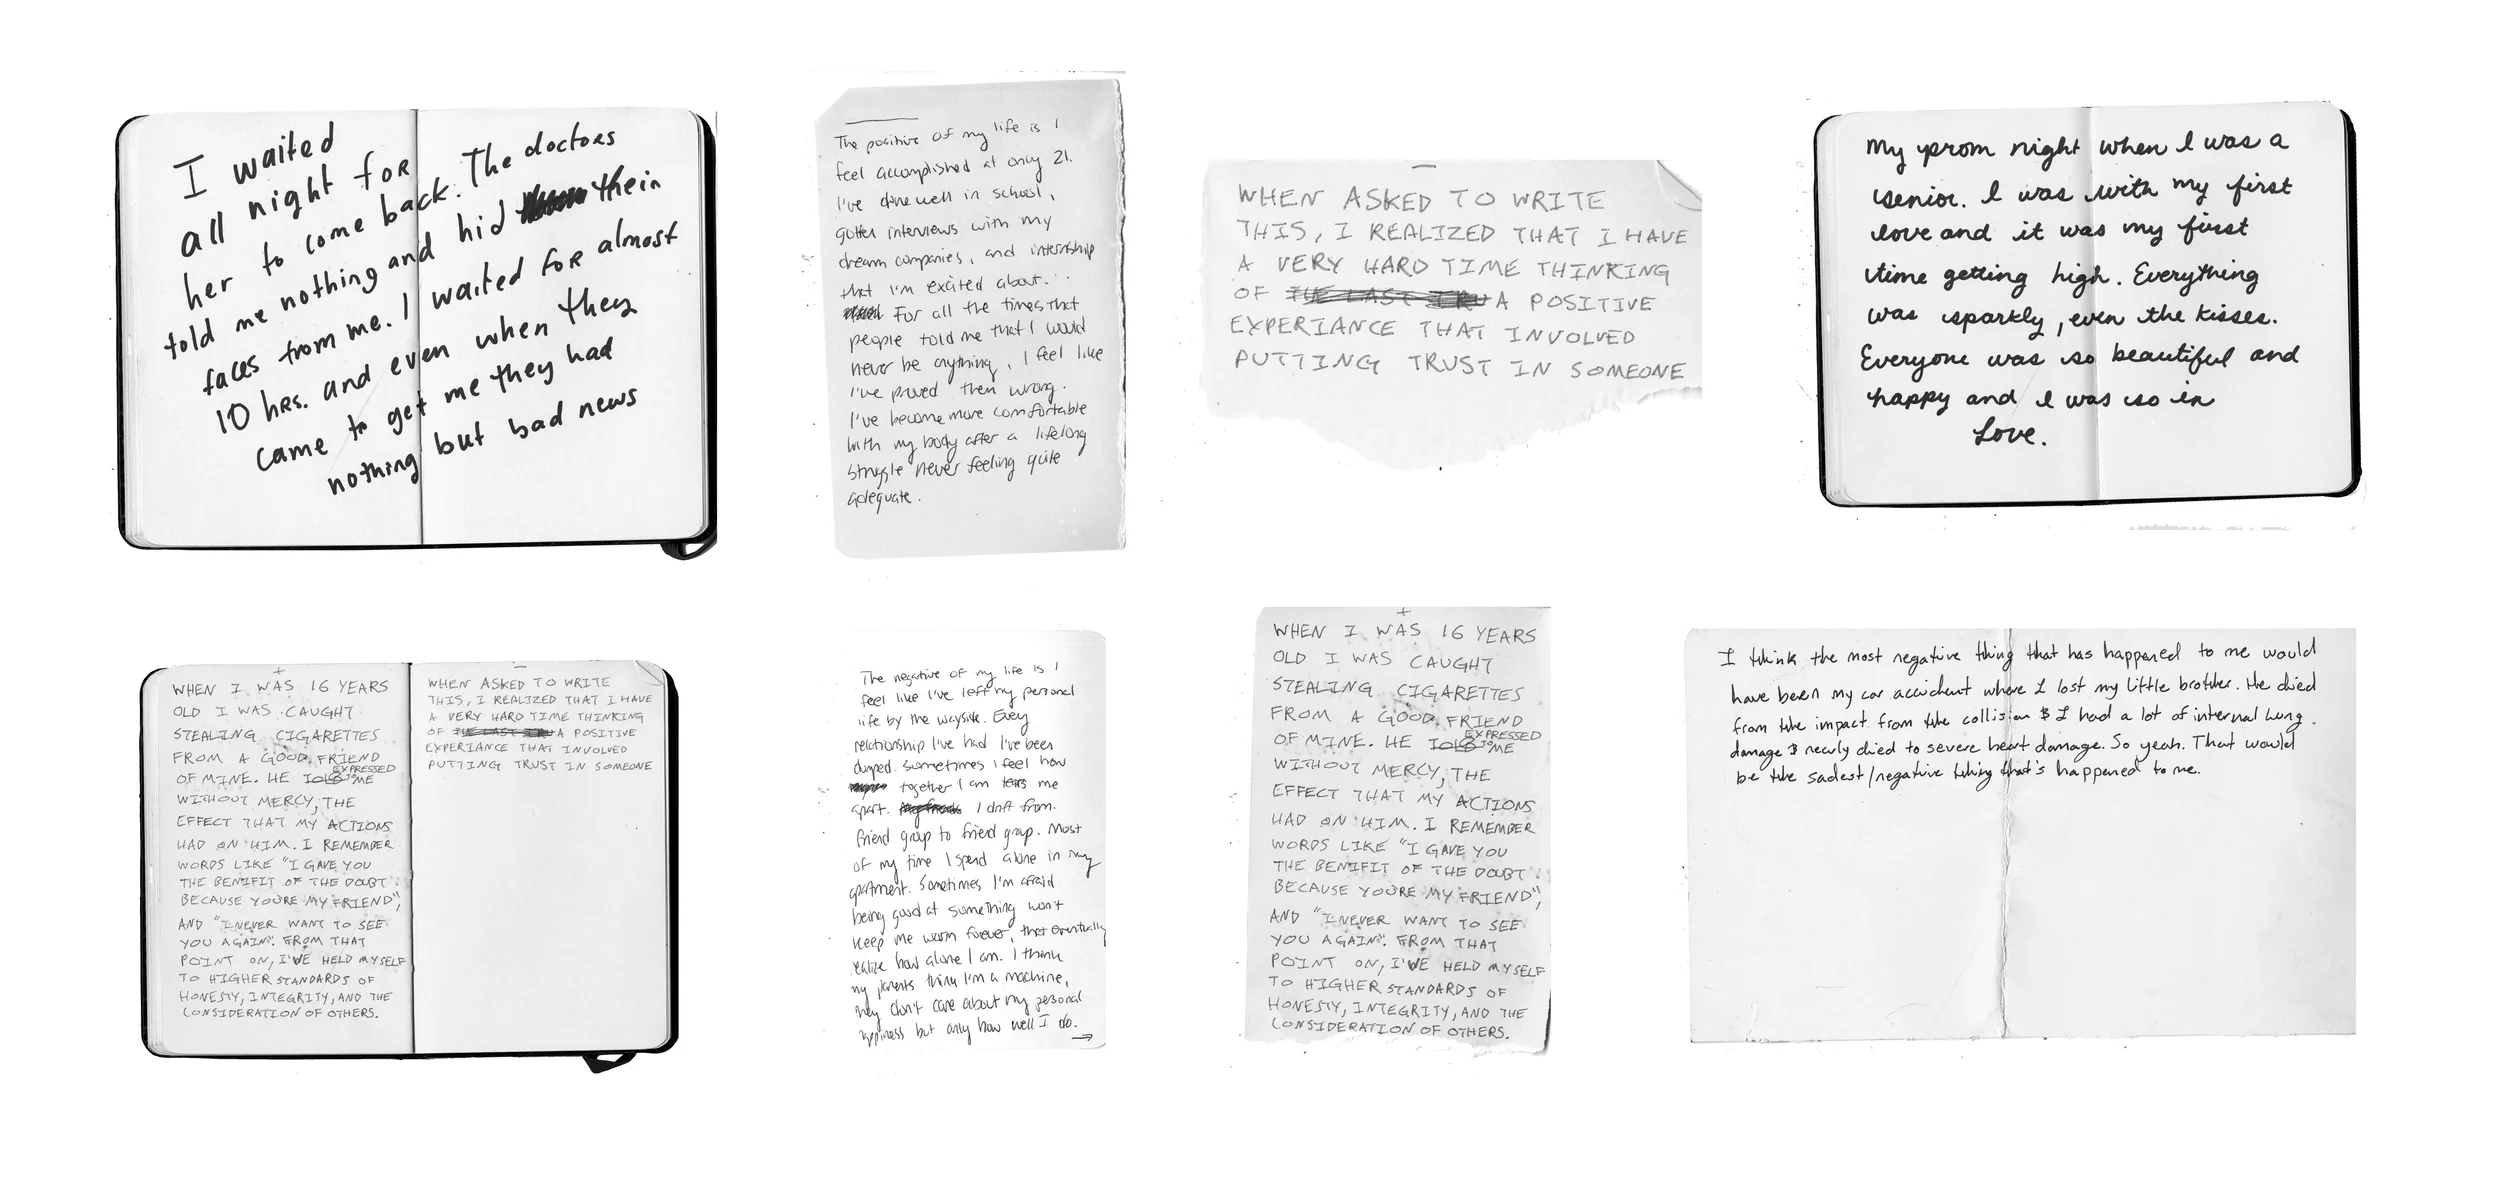 I waited
all night for
her to come back. The doctors
told me nothing and hid their
faces from me. I waited for almost
10 hrs. and even when they
came to get me they had
nothing but bad news
The positive of my life is I
feel accomplished at only 21.
I've done well in school,
gotten interviews with my
dream companies, and internship
that I'm excited about.
For all the times that
people told me that I would
never be anything, I feel like
I've proved them wrong.
I've become more comfortable
with my body after a lifelong
struggle never feeling quite
adequate.
WHEN ASKED TO WRITE
THIS, I REALIZED THAT I HAVE
A VERY HARD TIME THINKING
OF THE LAST TRU A POSITIVE
EXPERIANCE THAT INVOLVED
PUTTING TRUST IN SOMEONE
My prom night when I was a
senior. I was with my first
love and it was my first
time getting high. Everything
was sparkly, even the kisses.
Everyone was so beautiful and
happy and I was so in
Love.
+
WHEN I WAS 16 YEARS
OLD I WAS CAUGHT
STEALING CIGARETTES
FROM A GOOD FRIEND
OF MINE. HE TOLD EXPRESSED TO ME
WITHOUT MERCY, THE
EFFECT THAT MY ACTIONS
HAD ON HIM. I REMEMBER
WORDS LIKE "I GAVE YOU
THE BENIFIT OF THE DOUBT
BECAUSE YOU'RE MY FRIEND",
AND "I NEVER WANT TO SEE
YOU AGAIN". FROM THAT
POINT ON, I'VE HELD MYSELF
TO HIGHER STANDARDS OF
HONESTY, INTEGRITY, AND THE
CONSIDERATION OF OTHERS.
WHEN ASKED TO WRITE
THIS, I REALIZED THAT I HAVE
A VERY HARD TIME THINKING
OF THE LAST TRU A POSITIVE
EXPERIANCE THAT INVOLVED
PUTTING TRUST IN SOMEONE
The negative of my life is I
feel like I've left my personal
life by the wayside. Every
relationship I've had I've been
dumped. Sometimes I feel how
together I am tears me
apart. I drift from
friend group to friend group. Most
of my time I spend alone in my
apartment. Sometimes I'm afraid
being good at something won't
keep me warm forever, that eventually
realize how alone I am. I think
my parents think I'm a machine,
they don't care about my personal
happiness but only how well I do.
+
WHEN I WAS 16 YEARS
OLD I WAS CAUGHT
STEALING CIGARETTES
FROM A GOOD FRIEND
OF MINE. HE TOLD EXPRESSED TO ME
WITHOUT MERCY, THE
EFFECT THAT MY ACTIONS
HAD ON HIM. I REMEMBER
WORDS LIKE "I GAVE YOU
THE BENIFIT OF THE DOUBT
BECAUSE YOU'RE MY FRIEND",
AND "I NEVER WANT TO SEE
YOU AGAIN". FROM THAT
POINT ON, I'VE HELD MYSELF
TO HIGHER STANDARDS OF
HONESTY, INTEGRITY, AND THE
CONSIDERATION OF OTHERS.
I think the most negative thing that has happened to me would
have been my car accident where I lost my little brother. He died
from the impact from the collision & I had a lot of internal lung
damage & nearly died to severe heart damage. So yeah. That would
be the sadest/negative thing that's happened to me.